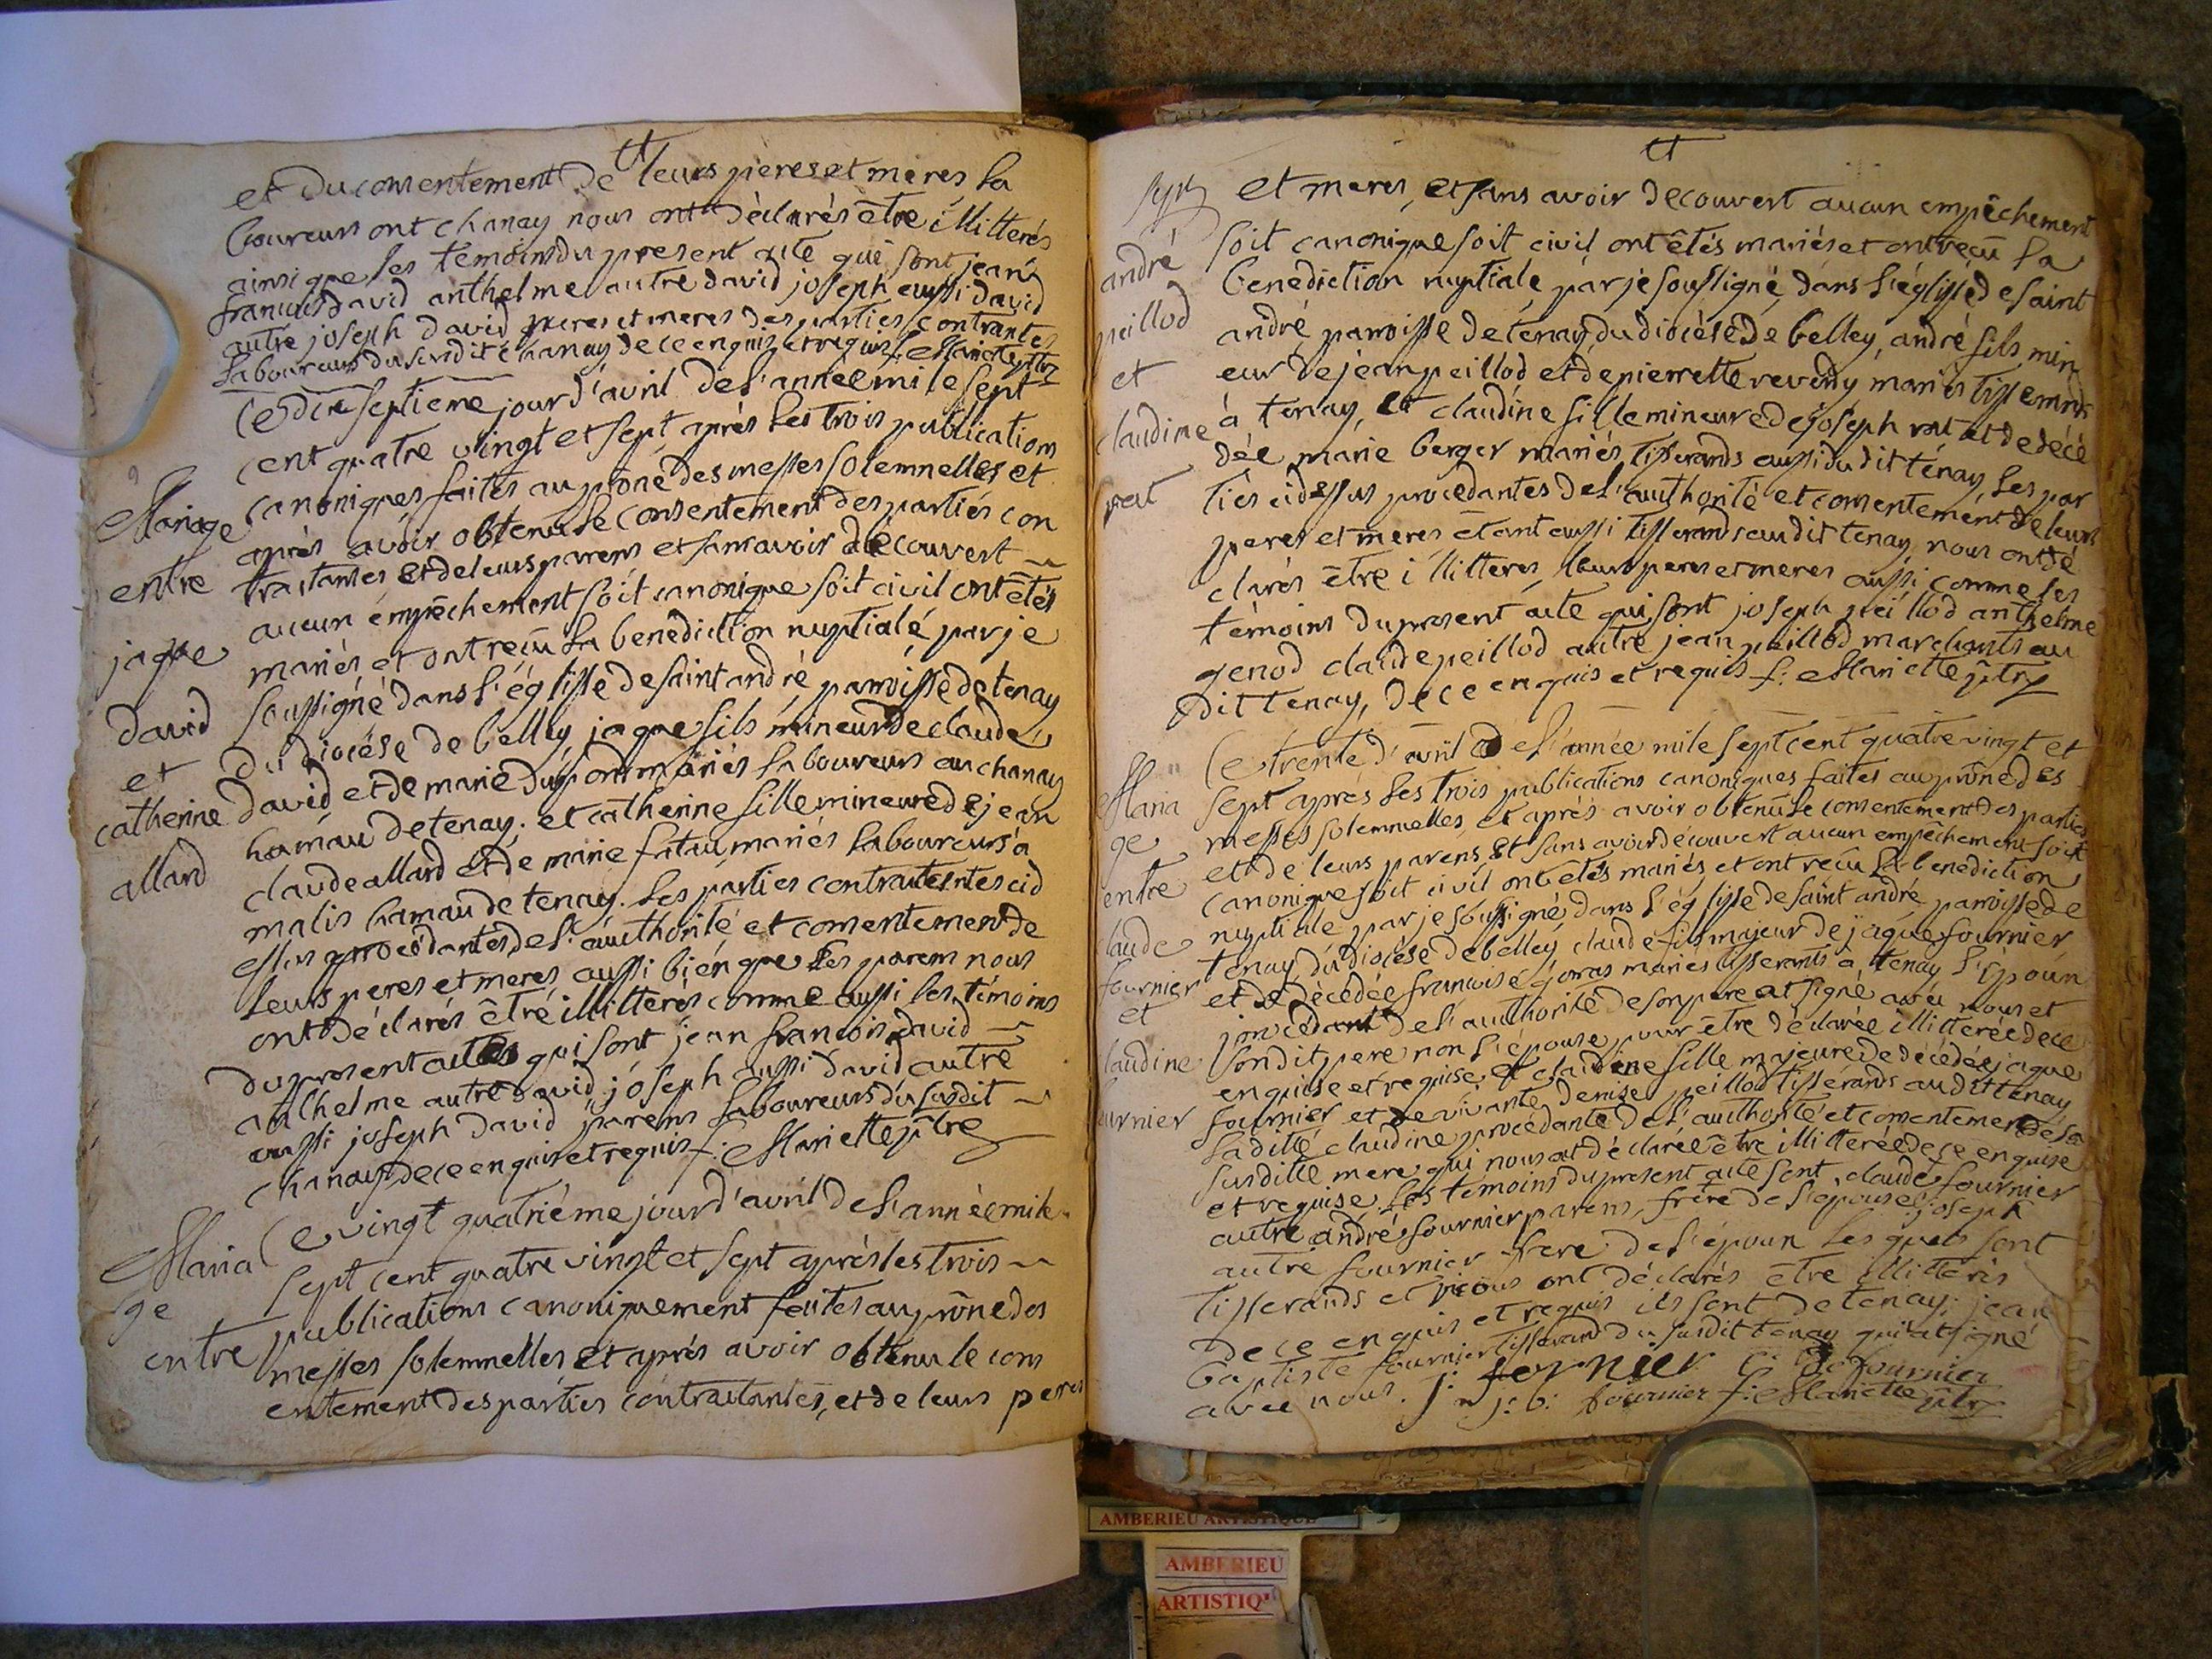 et du consentement de leurs peres et meres la
boureurs ont chanay nous ont déclarés être illitterés
ainsi que les temoins du present acte qui sont jean
francois david anthelme autre david joseph aussi david
autre joseph david peres et meres des parties contrantes
laboureurs du susdit chanay de ce enquis et requis f: Mariette ptre
Ce dix septieme jour d'avril de l'année mile sept
cent quatre vingt et sept aprés les trois publications
canoniques faites au prône des messes solemnelles et
aprés avoir obtenu le consentement des parties con
tractantes et de leurs parens et sans avoir découvert
aucun empêchement soit canonique soit civil ont êtés
mariés et ont reçu la benediction nuptiale par je
soussigné dans l'églisse de saint andré parroisse de tenay
du diocése de belley jaque fils mineur de claude
david et de marie dupont mariés laboureurs au chanay
hamau de tenay. et catherine fille mineure de jean
claude allard et de marie mariés laboureurs à
malis hamau de tenay. les parties contractantes cid
essus procédantes de l'authorité et consentement de
leurs peres et meres aussi bien que les parens nous
ont déclarés être illitterés comme aussi les témoins
du present acte qui sont jean francois david
anthelme autre david joseph aussi david autre
aussi joseph david parens laboureurs du susdit
chanay de ce enquis et requis f: Mariette ptre
Mariage
entre
jaque
david
et
catherine
allard
Ce vingt quatriéme jour d'avril de l'année mile
sept cent quatre vingt et sept aprés les trois
publications canoniquement faites au prône des
messes solemnelles et aprés avoir obtenu le cons
entement des parties contractantes, et de leurs peres
Maria
ge
entre
et meres, et sans avoir decouvert aucun empêchement
soit canonique soit civil ont êtés mariés et ont reçu la
benediction nuptiale par je soussigné dans l'églisse de saint
andré parroisse de tenay du diocèse de belley, andré fils min
eur de jean peillod et de pierrette reverdy mariés tisserands
à tenay, et claudine fille mineure de joseph et de décé
dée marie berger mariés tisserands aussi du dit ténay les par
ties cidessus procedantes de l'authorité et consentement de leurs
peres et meres êtant aussi tisserands au dit tenay nous ont dé
clarés être illitteres, leurs peres et meres aussi comme les
témoins du present acte qui sont joseph peillod anthelme
genod claude peillod autre jean peillod marchants au
dit tenay, de ce enquis et requis f: Mariette ptre
andré
peillod
et
claudine
Ce trente d'avril de l'année mile sept cent quatre vingt et
sept aprés les trois publications canoniques faites au prône des
messes solemnelles, et aprés avoir obtenu le consentement des parties
et de leurs parens, et sans avoir découvert aucun empêchement soit
canonique soit civil ont êtés mariés et ont reçu la benediction
nuptiale par je soussigné dans l'églisse de saint andré parroisse de
tenay du diocèse de belley claude fils majeur de jaque fournier
et de décédée francoise mariés tisserants à tenay l'époux
procédant de l'authorité de son pere at signé avec nous et
son dit pere non l'épouse pour être déclarée illitterée de ce
enquise et requise, et claudine fille majeure de décédée jaque
fournier et de vivante denise peillod tisserands au dit tenay
ladite claudine procédante de l'authorité et consentement de sa
susditte mere qui nous at déclarée être illitterée de ce enquise
et requise, les temoins du present acte sont claude fournier
autre andré fournier parens, frére de l'epouse, joseph
autre fournier frere de l'époux les quels sont
tisserands et nous ont déclarés être illitterés
de ce enquis et requis ils sont de tenay; jean
baptiste fournier tisserand du susdit tenay qui at signé
avec nous. j: fornier C: fournier
j: b: fournier f: Mariette ptre
Maria
ge
entre
claude
fournier
et
claudine
fournier
AMBERIEU ARTISTIQUE
AMBERIEU
ARTISTIQU